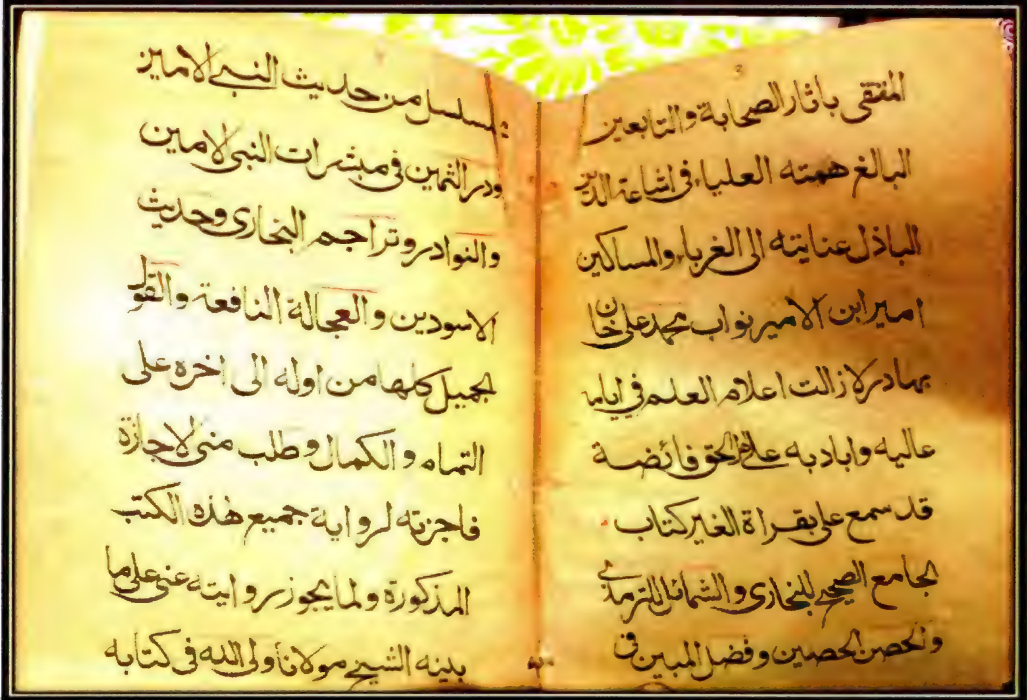 المقتفى باثار الصحابة والتابعين
البالغ همته العلياء فى اشاعة الدين
الباذل عنايته الى الغرباء والمساكين
امير ابن الامير نواب محمد على خان
بهادر لازالت اعلام العلم فى اياما
عاليه واباديه على الخلق فائضة
قد سمع على بقراة الغير كتاب
الجامع الصحيح للبخارى والشمائل للترمذي
والحصن الحصين وفضل المبين فى
مسلسل من حديث النبي الامين
ودر الثمين فى مبشرات النبي الامين
والنوادر وتراجم البخارى وحديث
الاسودين والعجالة النافعة والقول
لجميل كلها من اوله الى اخره على
التمام والكمال وطلب منى الاجازة
فاجزته لرواية جميع هذه الكتب
المذكورة ولما يجوز روايته عنى على ما
بينه الشيخ مولانا ولى الله فى كتابه